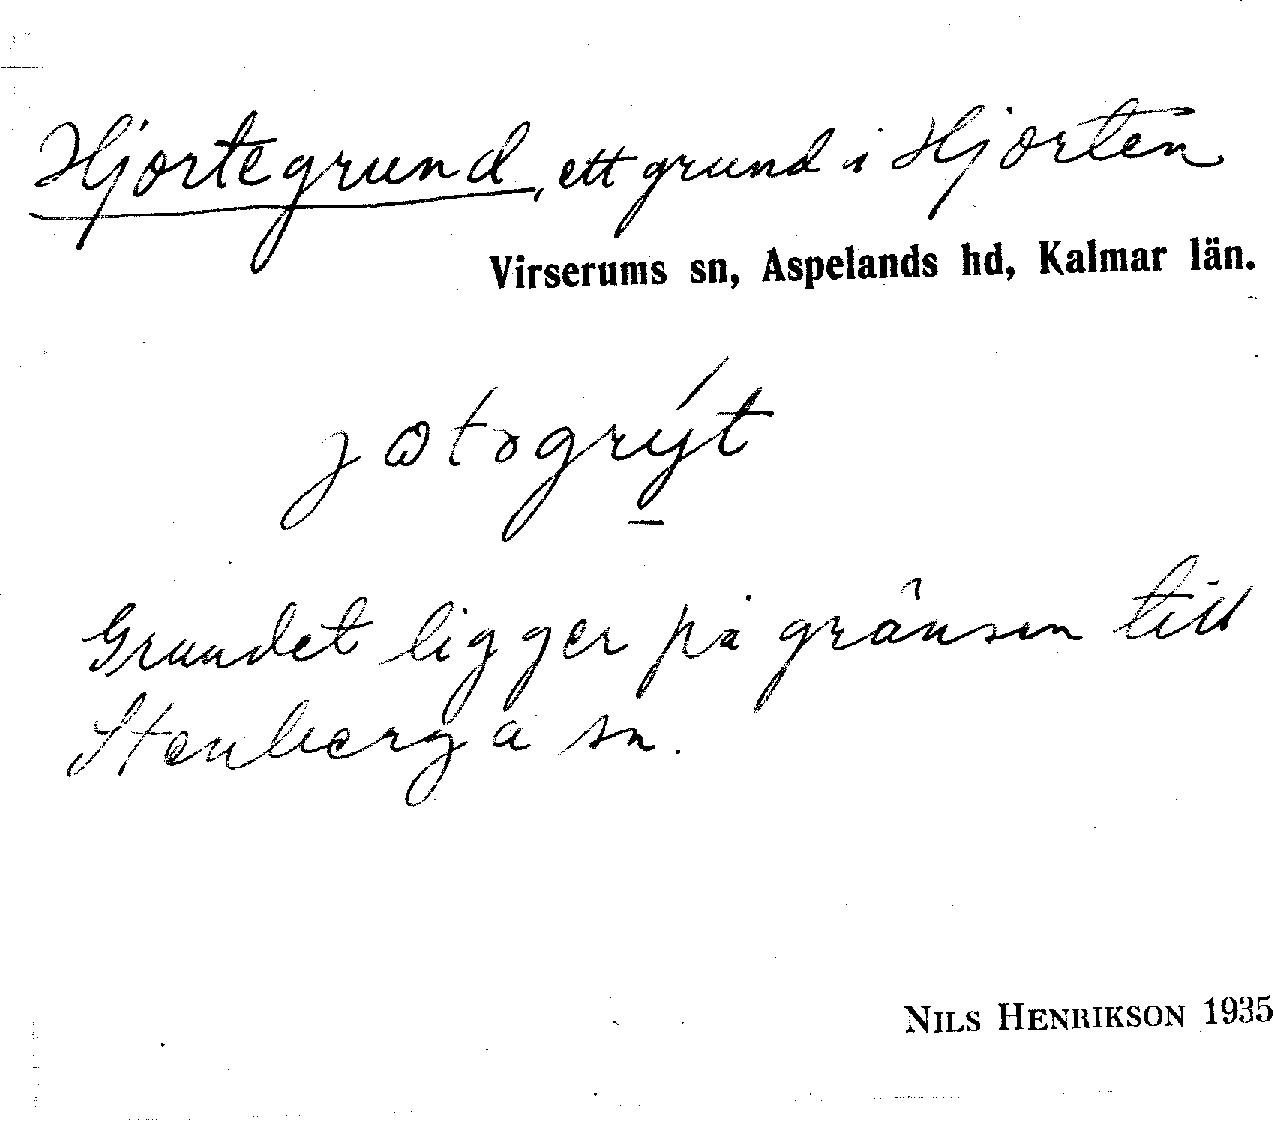 Hjortegrund, ett grund i Hjorten
Virserums sn, Aspelands hd, Kalmar län.
Grundet ligger på gränsen till
Stenberga sn.
NILS HENRIKSON 1935